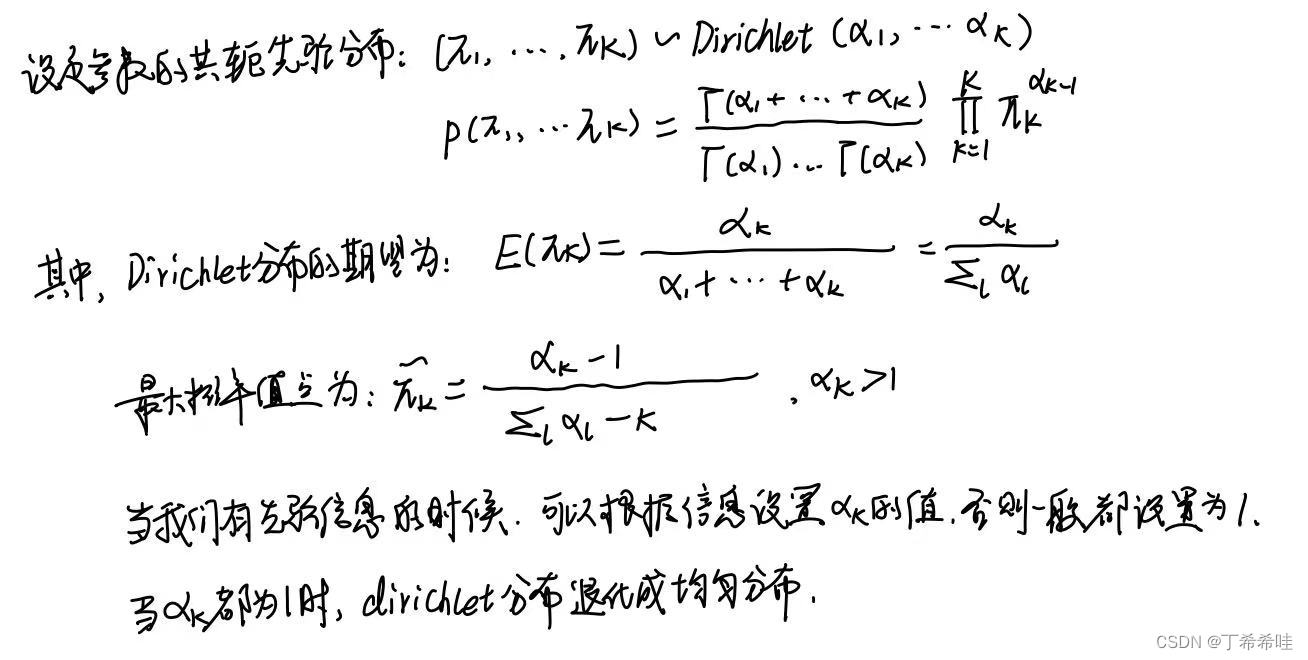 设定参数的共轭先验分布: (π₁, ⋯, π_K) ∼ Dirichlet (α₁, ⋯ α_K)
p(π₁, ⋯ π_K) = Γ(α₁ + ⋯ + α_K) / Γ(α₁) ⋯ Γ(α_K) ∏_{k=1}^{K} π_k^{α_k-1}
其中, Dirichlet分布的期望为: E(π_k) = α_k / (α₁ + ⋯ + α_K) = α_k / Σ_l α_l
最大概率值点为: π̃_k = (α_k - 1) / (Σ_l α_l - K) , α_k > 1
当我们有先验信息的时候. 可以根据信息设置 α_k 的值, 否则一般都设置为 1.
当 α_k 都为 1 时, dirichlet 分布退化成均匀分布.
CSDN @丁希希哇